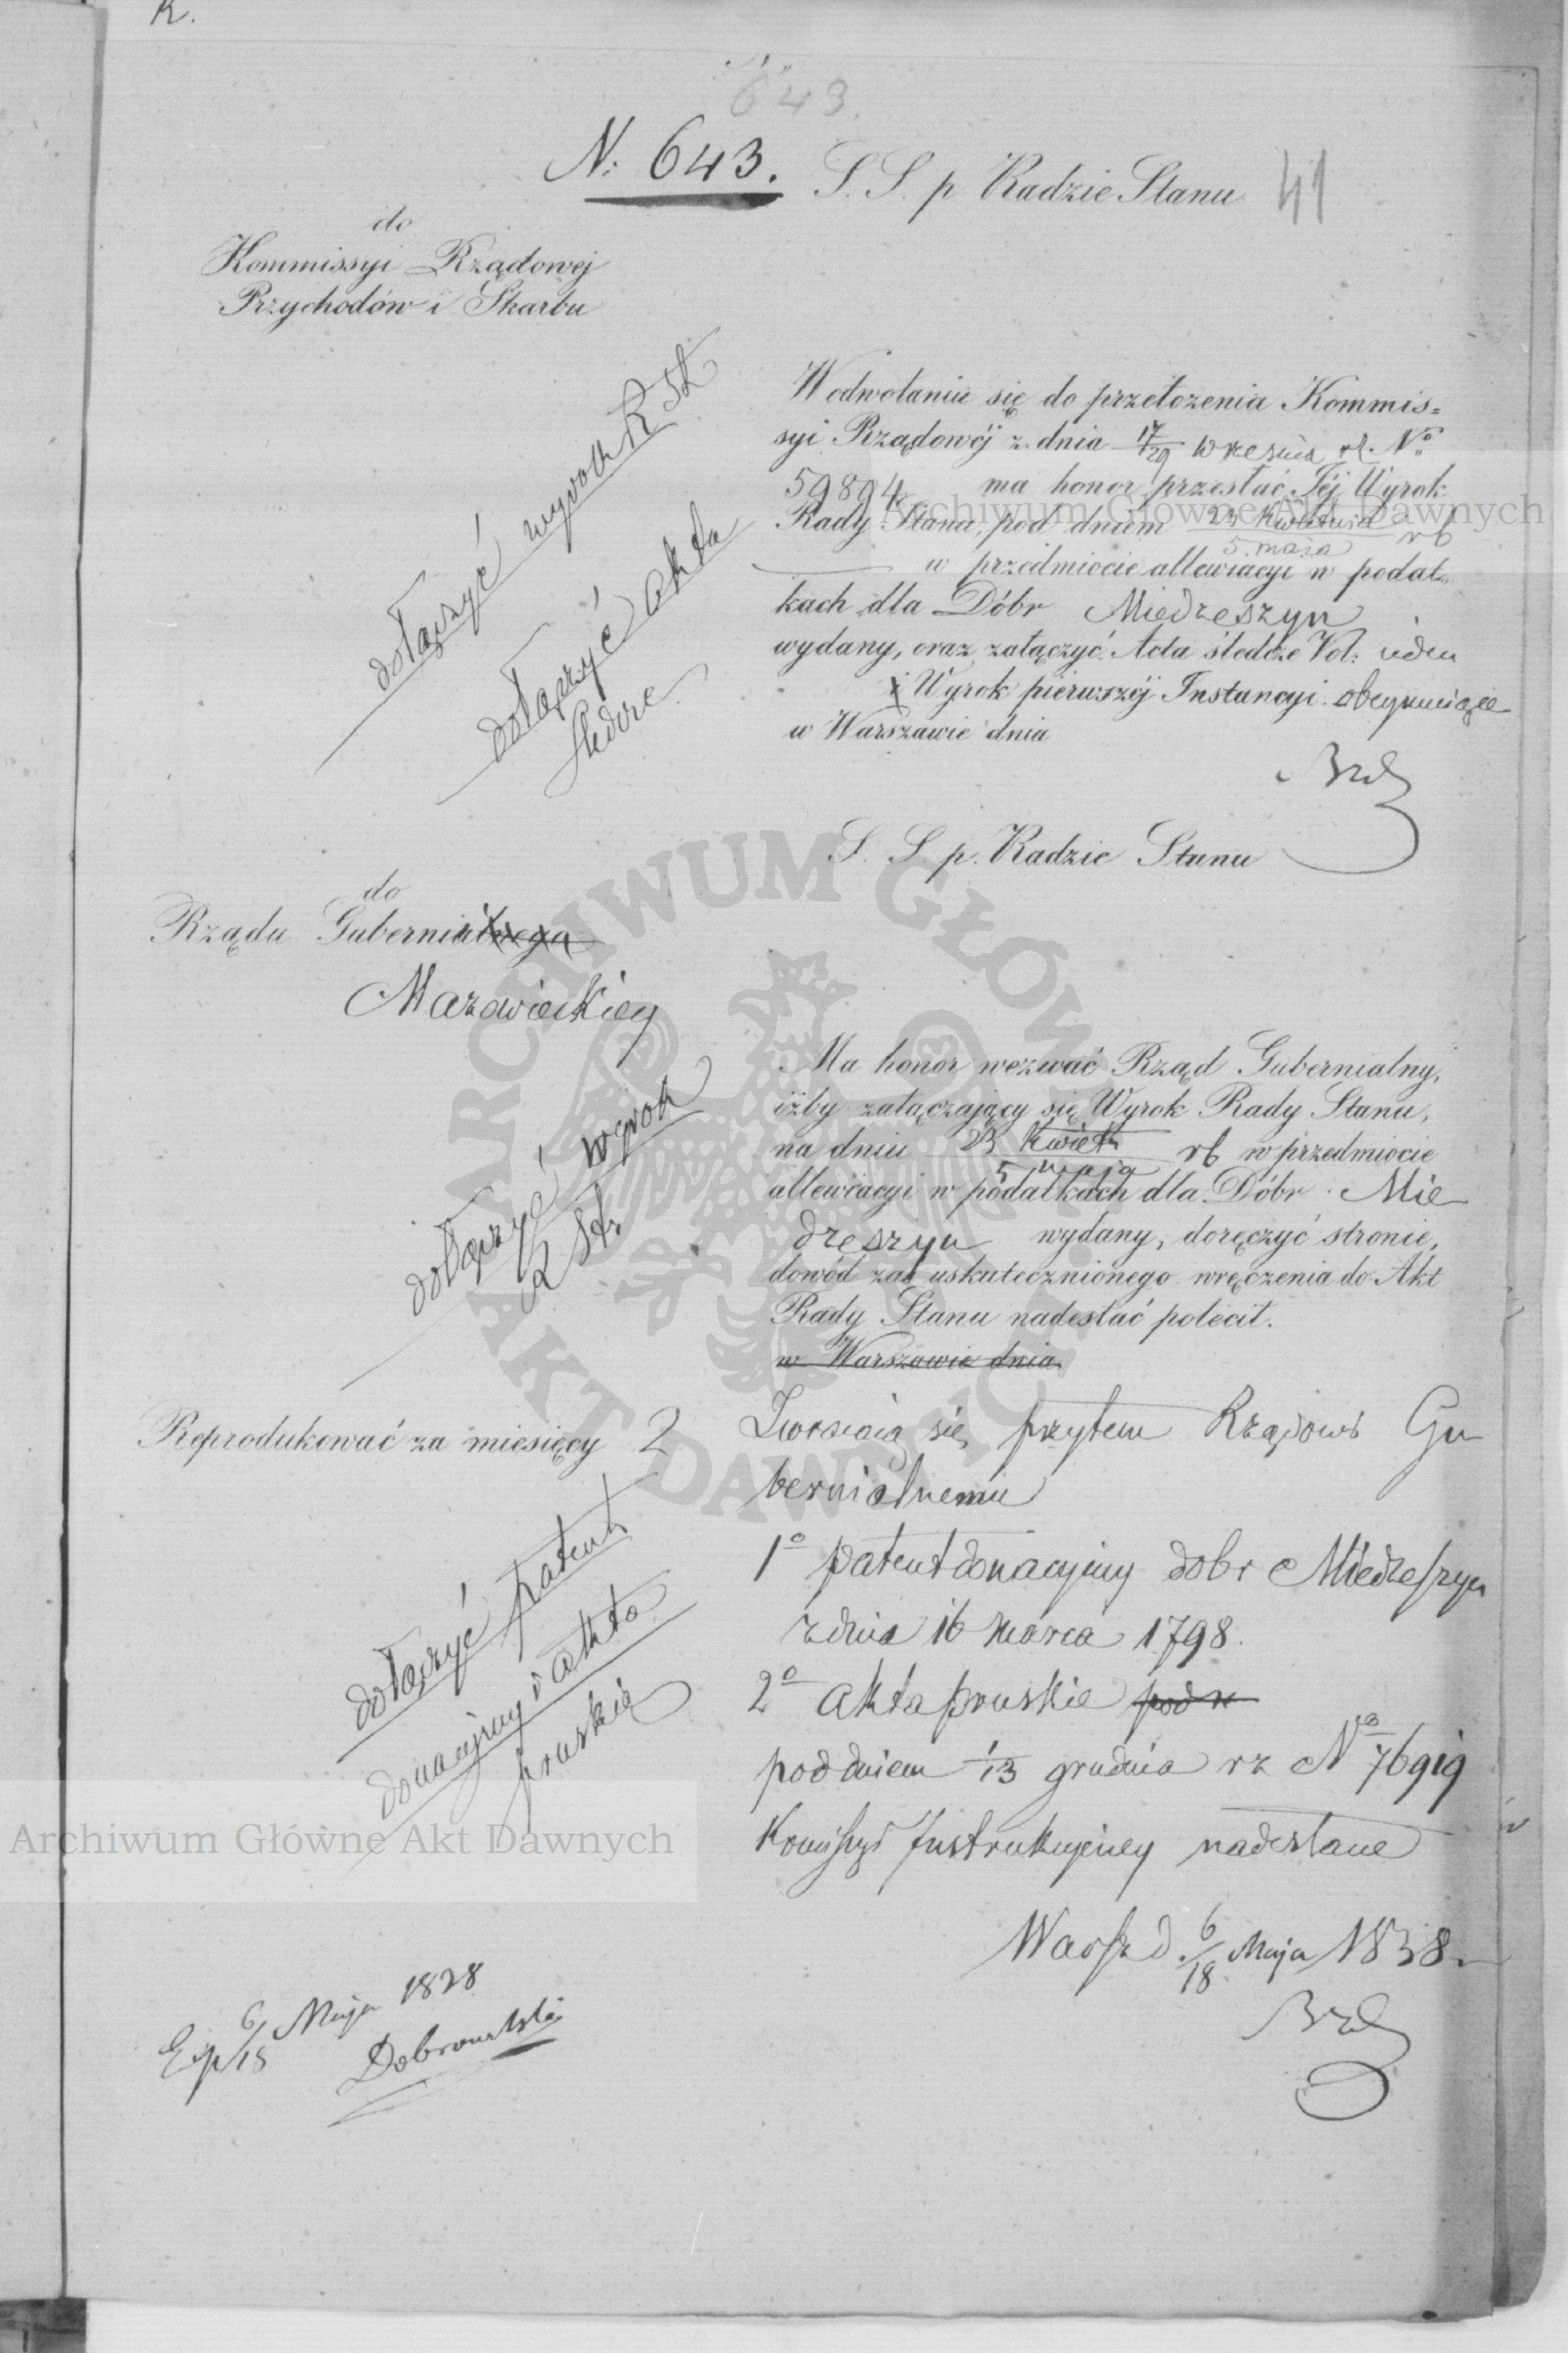 K.
643.
N: 643.
S. S. p Radzie Stanu
41
do
Kommissyi Rządowej
Przychodów i Skarbu
dołączyć wyrok R St
dołączyć akta
śledcze
W odwołaniu się do przełożenia Kommis=
syi Rządowéj z dnia 17/29 września N°
59894 ma honor przesłać Jéj Wyrok
Rady Stanu, pod dniem 23 kwietnia rb
5 maja
w przedmiocie allewiacyi w podat=
kach dla Dóbr Miedzeszyn
wydany, oraz załączyć Acta śledcze Vol:
i Wyrok pierwszéj Instancyi obejmujące
w Warszawie dnia
S. S. p. Radzie Stanu
do
Rządu Gubernialnego
Mazowieckiey
dołączyć wyrok
R St.
Ma honor wezwać Rząd Gubernialny,
iżby załączający się Wyrok Rady Stanu,
na dniu 23 kwiet rb w przedmiocie
5 maja
allewiacyi w podatkach dla Dóbr Mie
dzeszyn wydany, doręczyć stronie,
dowód zaś uskutecznionego wręczenia do Akt
Rady Stanu nadesłać polecił.
w Warszawie dnia
Reprodukować za miesięcy 2
Zwracają się przytem Rządowi Gu
bernialnemu
1° patent donacyjny dobr Miedzeszyn
z dnia 16 marca 1798.
2° akta pruskie pod n
pod dniem 1/13 grudnia rz N° 76919
Kommissyi Instrukcyiney nadesłane
dołączyć patent
donacyjny i akta
pruskie
Warsz d. 6/18 Maja 1838.
Exp 6/18 Maja 1838
Dobrowolski
Archiwum Główne Akt Dawnych
ARCHIWUM GŁÓWNE AKT DAWNYCH
Archiwum Główne Akt Dawnych